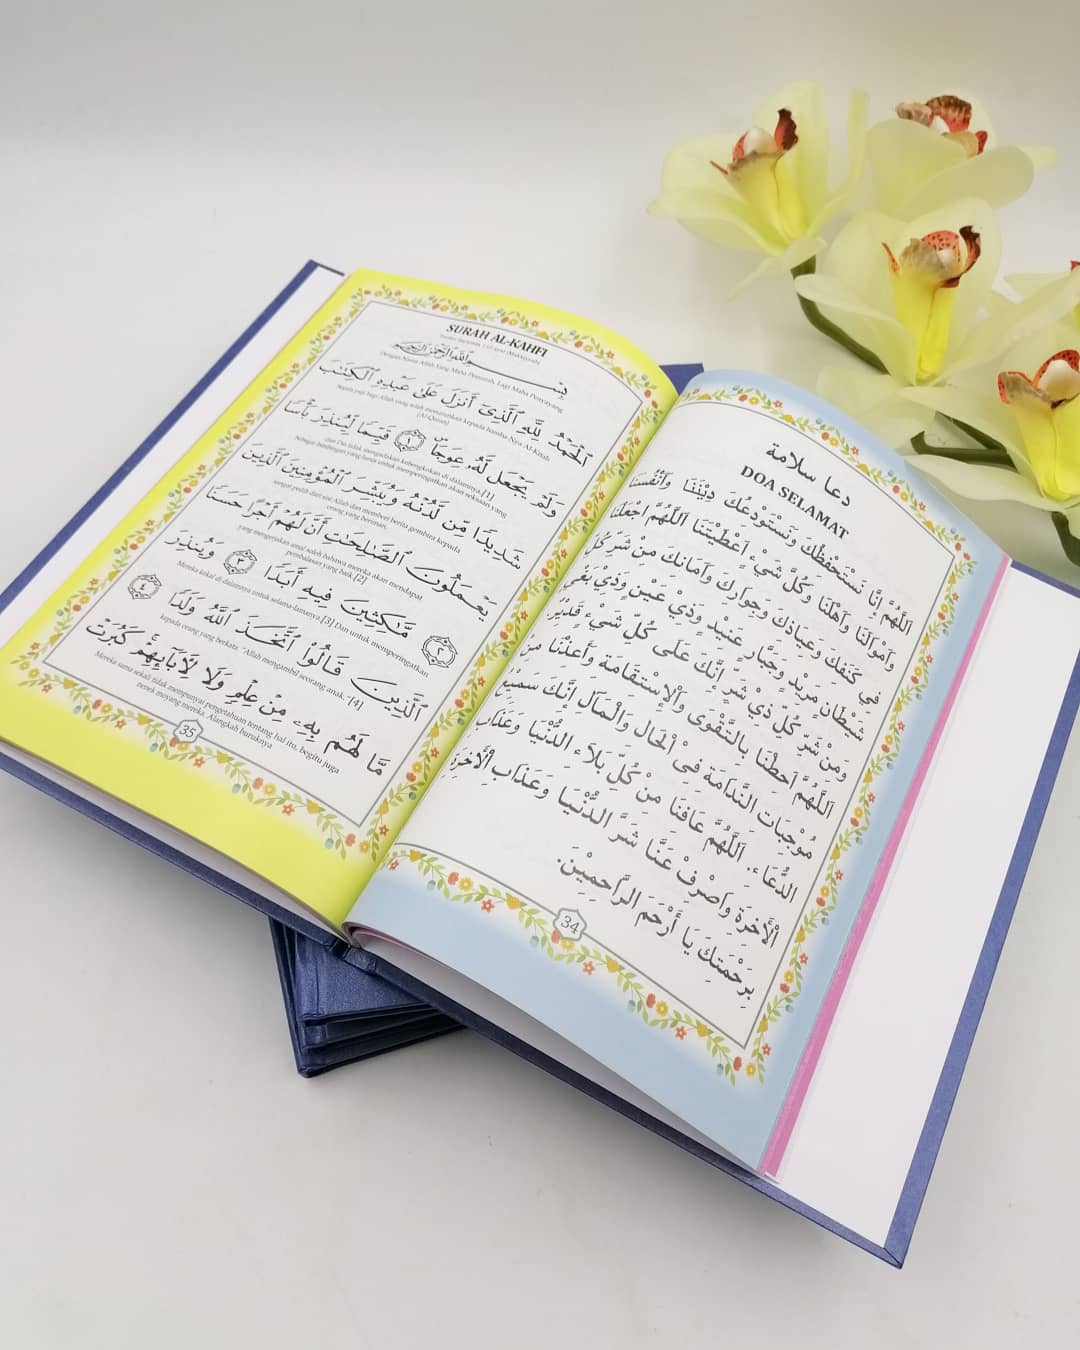 دعا سلامة
DOA SELAMAT
اَللّٰهُمَّ إِنَّا نَسْتَحْفِظُكَ وَنَسْتَوْدِعُكَ دِيْنَنَا وَأَنْفُسَنَا
وَأَمْوَالَنَا وَأَهْلَنَا وَكُلَّ شَيْءٍ أَعْطَيْتَنَا اَللّٰهُمَّ اجْعَلْنَا
فِي كَنَفِكَ وَعِيَاذِكَ وَجِوَارِكَ وَأَمَانِكَ مِنْ شَرِّ كُلِّ
شَيْطَانٍ مَرِيْدٍ وَجَبَّارٍ عَنِيْدٍ وَذِيْ عَيْنٍ وَذِيْ بَغْيٍ
وَمِنْ شَرِّ كُلِّ ذِيْ شَرٍّ إِنَّكَ عَلَى كُلِّ شَيْءٍ قَدِيْرٌ
اَللّٰهُمَّ أَحِطْنَا بِالتَّقْوَى وَالْاِسْتِقَامَةِ وَأَعِذْنَا مِنْ
مُوْجِبَاتِ النَّدَامَةِ فِى الْحَالِ وَالْمَآلِ إِنَّكَ سَمِيْعُ
الدُّعَاءِ. اَللّٰهُمَّ عَافِنَا مِنْ كُلِّ بَلَاءِ الدُّنْيَا وَعَذَابِ
الْأٰخِرَةِ وَاصْرِفْ عَنَّا شَرَّ الدُّنْيَا وَعَذَابِ الْأٰخِرَةِ
بِرَحْمَتِكَ يَا أَرْحَمَ الرَّاحِمِيْنَ.
34
SURAH AL-KAHFI
بِسْمِ اللَّهِ الرَّحْمَٰنِ الرَّحِيمِ
Dengan Nama Allah Yang Maha Pemurah, Lagi Maha Penyayang
ٱلْحَمْدُ لِلَّهِ ٱلَّذِىٓ أَنزَلَ عَلَىٰ عَبْدِهِ ٱلْكِتَٰبَ
Segala puji bagi Allah yang telah menurunkan kepada hamba-Nya Al-Kitab
(Al-Quran)
وَلَمْ يَجْعَل لَّهُۥ عِوَجَا ۜ ١ قَيِّمًا لِّيُنذِرَ بَأْسًا
dan Dia tidak mengadakan kebengkokan di dalamnya.[1]
Sebagai bimbingan yang lurus untuk memperingatkan akan seksaan yang
شَدِيدًا مِّن لَّدُنْهُ وَيُبَشِّرَ ٱلْمُؤْمِنِينَ ٱلَّذِينَ
sangat pedih dari sisi Allah dan memberi berita gembira kepada
orang yang beriman,
يَعْمَلُونَ ٱلصَّٰلِحَٰتِ أَنَّ لَهُمْ أَجْرًا حَسَنًا
yang mengerjakan amal soleh bahawa mereka akan mendapat
pembalasan yang baik.[2]
٢ مَّٰكِثِينَ فِيهِ أَبَدًا ٣ وَيُنذِرَ
Mereka kekal di dalamnya untuk selama-lamanya.[3] Dan untuk memperingatkan
ٱلَّذِينَ قَالُوا۟ ٱتَّخَذَ ٱللَّهُ وَلَدًا ٤
kepada orang yang berkata: "Allah mengambil seorang anak."[4]
مَّا لَهُم بِهِۦ مِنْ عِلْمٍ وَلَا لِءَابَآئِهِمْ ۚ كَبُرَتْ
Mereka sama sekali tidak mempunyai pengetahuan tentang hal itu, begitu juga
nenek moyang mereka. Alangkah buruknya
35